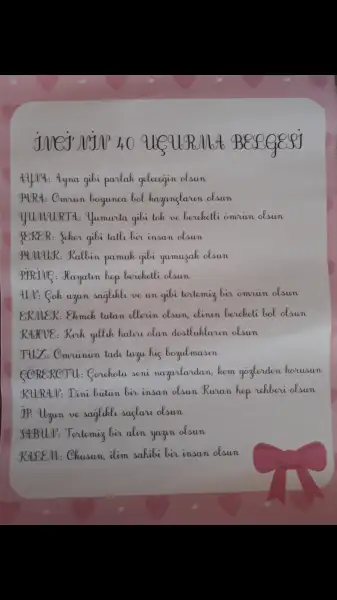 İNCİ'NİN 40 UÇURMA BELGESİ
AYNA: Ayna gibi parlak geleceğin olsun
PARA: Ömrün boyunca bol kazançların olsun
YUMURTA: Yumurta gibi tok ve bereketli ömrün olsun
ŞEKER: Şeker gibi tatlı bir insan olsun
PAMUK: Kalbin pamuk gibi yumuşak olsun
PİRİNÇ: Hayatın hep bereketli olsun
UN: Çok uzun sağlıklı ve un gibi tertemiz bir ömrün olsun
EKMEK: Ekmek tutan ellerin olsun, elinin bereketi bol olsun
KAHVE: Kırk yıllık hatırı olan dostlukların olsun
TUZ: Ömrünün tadı tuzu hiç bozulmasın
ÇÖREKOTU: Çörekotu seni nazarlardan, kem gözlerden korusun
KURAN: Dini bütün bir insan olsun Kuran hep rehberi olsun
İP: Uzun ve sağlıklı saçları olsun
SABUN: Tertemiz bir alın yazın olsun
KALEM: Okusun, ilim sahibi bir insan olsun